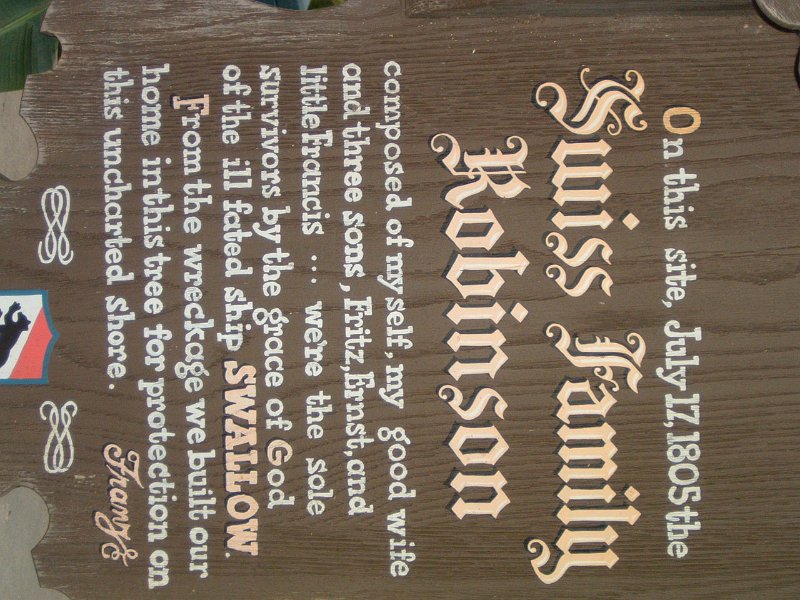 On this site, July 17, 1805 the
Swiss Family
Robinson
composed of myself, my good wife
and three sons, Fritz, Ernst, and
little Francis ... were the sole
survivors by the grace of God
of the ill fated ship SWALLOW.
From the wreckage we built our
home in this tree for protection on
this uncharted shore.
Franz